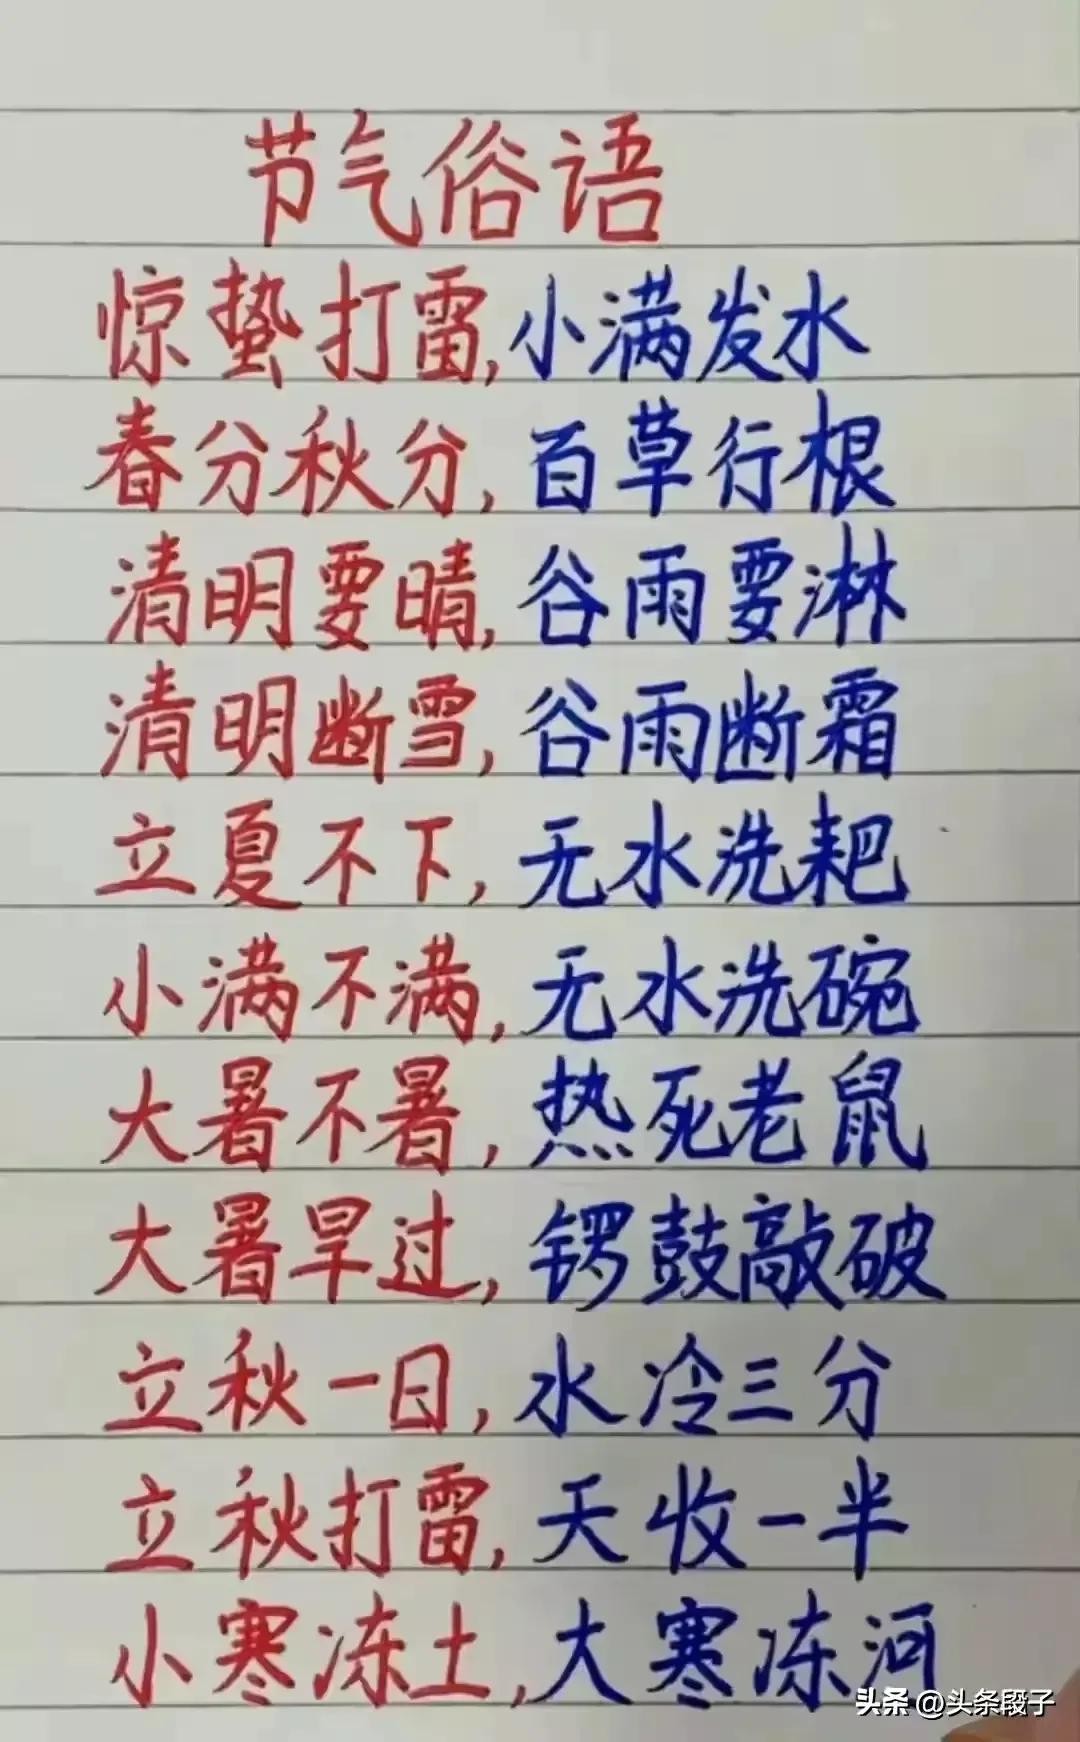 节气俗语
惊蛰打雷,小满发水
春分秋分,百草行根
清明要晴,谷雨要淋
清明断雪,谷雨断霜
立夏不下,无水洗耙
小满不满,无水洗碗
大暑不暑,热死老鼠
大暑早过,锣鼓敲破
立秋一日,水冷三分
立秋打雷,天收一半
小寒冻土,大寒冻河
头条 @头条段子